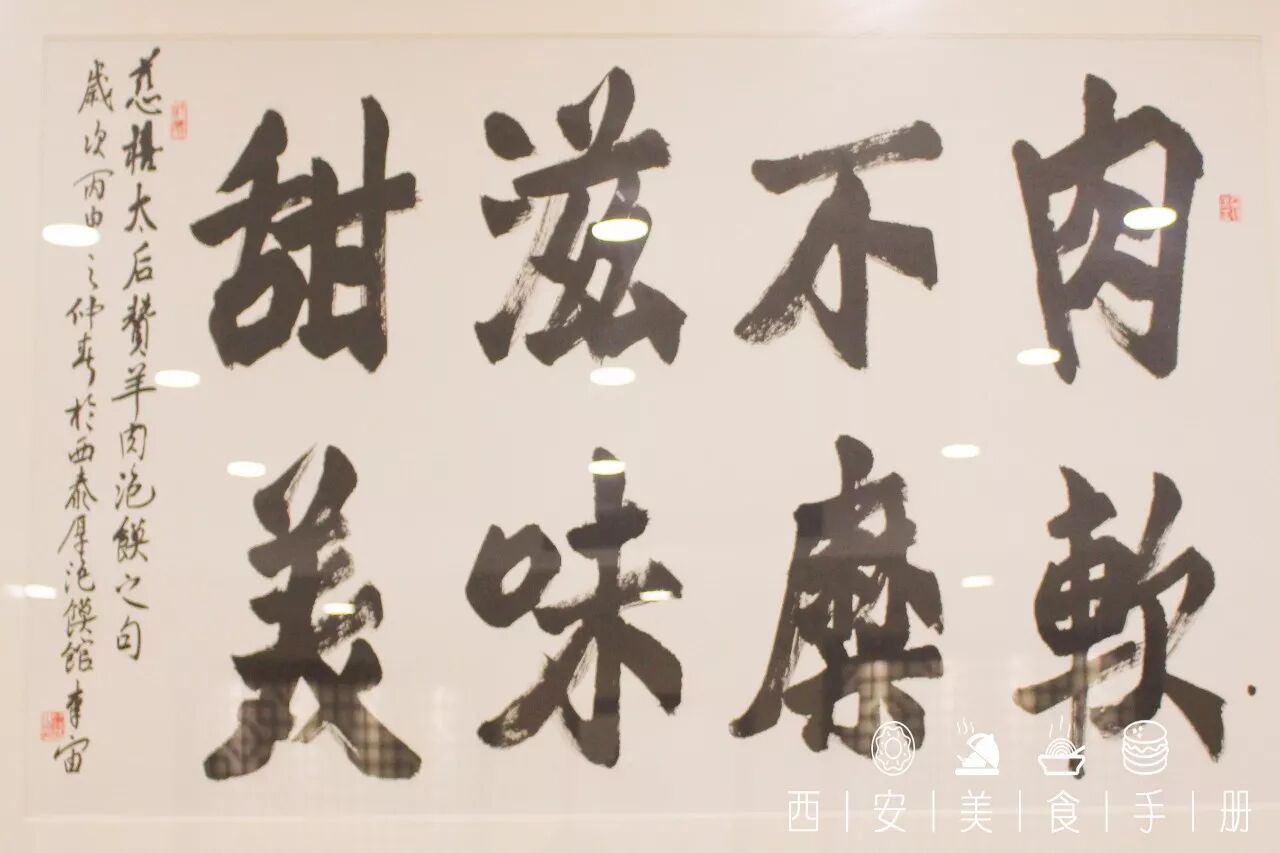 肉軟
不糜
滋味
甜美
慈禧太后贊羊肉泡饃之句
歲次丙申之仲春於西泰厚泡饃館 李宙
西安美食手册